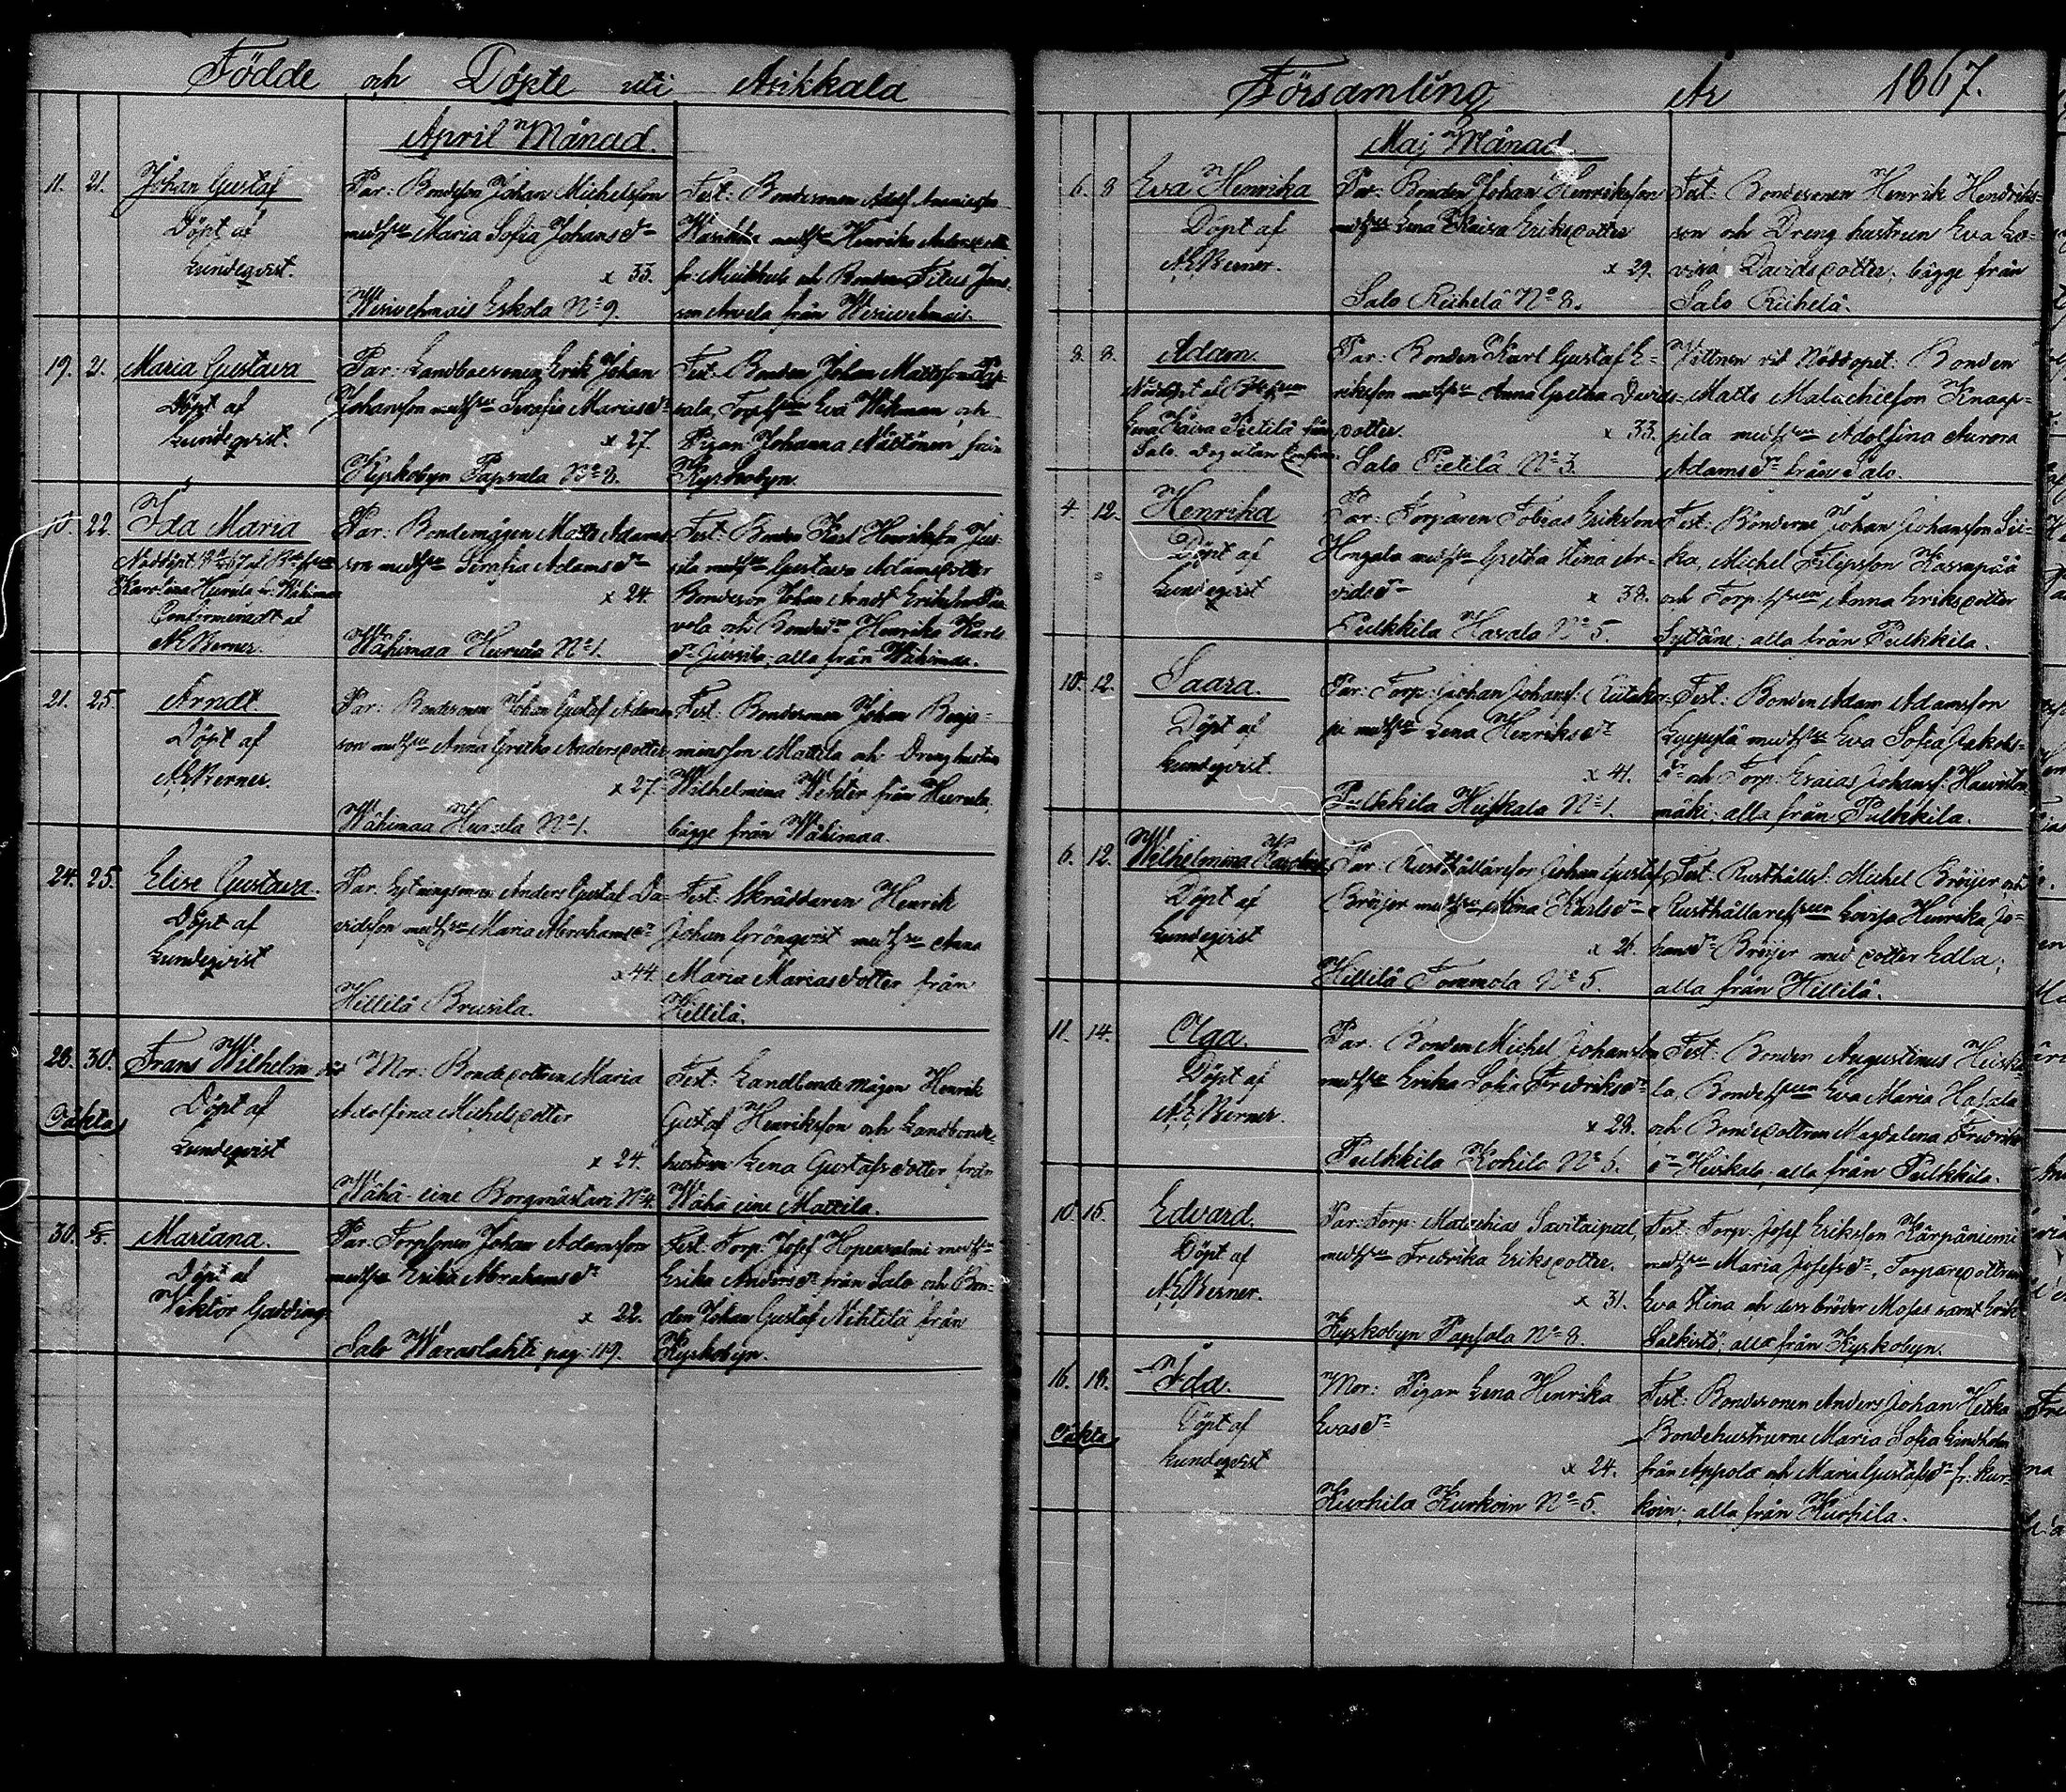 Födde och Döpte uti Asikkala
April Månad.
11. 21. Johan Gustaf
Döpt af
Lundeqvist.
Par: Bondson Johan Michelsson
med hru Maria Sofia Johansdr
x 33.
Wesivehmais Eskola No 9.
Test: Bondesonen Adolf Ananiasson
med hru Henrika
och Bonden Titus
Anvela från Wesivehmais.
19. 21. Maria Gustava
Döpt af
Lundeqvist.
Par: Landboesonen Erik Johan
Johansson med hru Serafia Mariasdr
x 27.
Kyrkobyn Papsala No 8.
Test: Bonden Johan Mattsson Pap-
sala, Torp. hrun Eva Wikman och
Pigan Johanna Nästönen från
Kyrkobyn.
10. 22. Ida Maria
Nöddöpt af
Karolina Heinila fr. Wähimaa
Confirmeradt af
AE Berner.
Par: Bondemågen Matts Adams-
son med hru Serafia Adamsdr
x 24.
Wähimaa No 1.
Test: Bonden Karl Henriksson Jus-
sila med hru Gustava Adamsdotter
Bondeson Johan Arndt Eriksson Paa-
vola och Bondedr Henrika Karls-
dr Jussila; alla från Wähimaa.
21. 25. Arndt
Döpt af
AE Berner.
Par: Bondesonen Johan Gustaf Adams-
son med hru Anna Gretha Andersdotter
x 27.
Wähimaa No 1.
Test: Bondesonen Johan Benja-
minsson Mattila och Dreng hustrun
Wilhelmina Wekter från
bägge från Wähimaa.
24. 25. Elise Gustava.
Döpt af
Lundeqvist
Par: Sytningsman Anders Gustaf Da-
vidsson med hru Maria Abrahamsdr
x 44.
Hillilä Brusila.
Test: Skräddaren Henrik
Johan Grönqvist med hru Anna
Maria Mariasdotter från
Hillilä.
28. 30. Frans Wilhelm
Oäkta
Döpt af
Lundeqvist
Mor: Bondedottren Maria
Adolfina Michelsdotter
x 24.
Wähä-eine Borgmästari No 4.
Test: Landbondemågen Henrik
Gustaf Henriksson och Landbonde-
hustrun Lena Gustafsdotter från
Wähä eine Mattila.
30. 5/5. Mariana.
Döpt af
Wiktor Gadding.
Par: Torpsonen Johan Adamsson
med hru Erika Abrahamsdr
x 22.
Salo Waraslahti pag: 119.
Test: Torp. Josef Hopensalmi med hru
Erika Andersdr från Salo och Bon-
den Johan Gustaf Nihtilä från
Kyrkobyn.
Församling År 1867.
Maj Månad
6. 8 Eva Henrika
Döpt af
AE Berner.
Par: Bonden Johan Henriksson
med hru Lena Kaisa Eriksdotter
x 29.
Salo Riihelä No 8.
Test: Bondesonen Henrik Hendriks-
son och Dreng hustrun Eva Lo-
visa Davidsdotter; bägge från
Salo Riihelä.
8. 8. Adam.
Nöddöpt af
Lena Kaisa Pietilä från
Salo. Dog utan Confirm.
Par: Bonden Karl Gustaf E-
riksson med hru Anna Gretha Davids-
dotter.
x 33.
Salo Pietilä No 3.
Vittnen vid Nöddopet: Bonden
Matts Malachiesson Knaap-
pila med hrun Adolfina Aurora
Adamsdr från Salo.
4. 12. Henrika
Döpt af
Lundeqvist
Par: Torparen Tobias Eriksson
Hongala med hru Gretha Stina Ar-
vidsdr
x 38.
Pulkkila No 5.
Test: Bönderne Johan Johansson Sii-
ka, Michel Filipsson Kassapää
och Torp. hrun Anna Eriksdotter
Syttäne; alla från Pulkkila.
10. 12. Saara.
Döpt af
Lundeqvist.
Par: Torp: Johan Johanss:
med hru Lena Henriksdr
x 41.
Pulkkila Huskala No 1.
Test: Bonden Adam Adamsson
med hru Eva Sofia Jakobs-
dr och Torp: Esaias Johanss:
mäki; alla från Pulkkila.
6. 12. Wilhelmina
Döpt af
Lundeqvist
Par: Rusthållaresson Johan Gustaf
Bröijer med hru Mina Karlsdr
x 26.
Hillilä Tommola No 5.
Test: Rusthålls: Michel Bröijer och
Rusthållarehrun Lovisa Henrika Jo-
hansdr Bröijer med dotter Edla;
alla från Hillilä.
11. 14. Olga.
Döpt af
AE Berner.
Par: Bonden Michel Johansson
med hru Erika Sofia Fredriksdr
x 28.
Pulkkila No 6.
Test: Bonden Augustinus Huska-
la, Bondehrun Eva Maria
och Bondedottren Magdalena Fredriks-
dr Huskala; alla från Pulkkila.
10. 15. Edvard.
Döpt af
AE Berner.
Par: Torp: Malachias Savitaipal,
med hru Fredrika Eriksdotter.
x 31.
Kyrkobyn Papsala No 8.
Test: Torp: Josef Eriksson Kärpäniemi
med hru Maria Josefsdr, Torparedottren
Eva Stina och dess bröder Moses samt Erik
alla från Kyrkobyn.
16. 18. Ida.
Oäkta
Döpt af
Lundeqvist
Mor: Pigan Lena Henrika
Evasdr
x 24.
Kurhila Kurkoin No 5.
Test: Bondesonen Anders Johan
Bondehustrurne Maria Sofia Lindholm
från Appola och Maria Gustafsdr fr. Kur-
koin; alla från Kurhila.